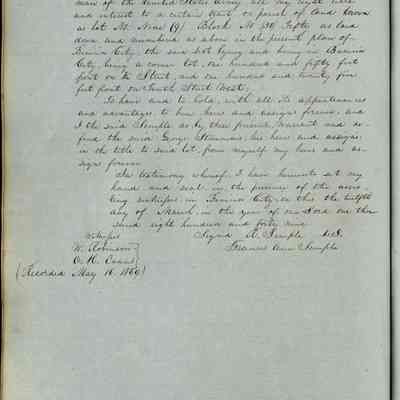 man of the United States Army all my right title
and interest to a certain Lot, or parcel of land known
as lot No. Nine (9) Block No (50) Fifty as laid
down and numbered as above in the present plan of
Benicia City, the said lot lying and being in Benicia
City, being a corner lot, one hundred and fifty feet
front on Street, and one hundred and twenty five
feet front on South Street West;
To have and to hold, with all its appurtenances
and advantages, to him heirs and assigns forever, and
I the said Semple do by these presents, warrant and de-
fend the said George Stoneman, his heirs and assigns,
in the title to said lot, from myself my heirs and as-
signs forever
In testimony whereof, I have hereunto set my
hand and seal, in the presence of the
witnesses, in Benicia City, on this the twelfth
day of March, in the year of our Lord one thou
sand eight hundred and forty nine
Witnesses Signed R. Semple
W. Robinson Frances Ann Semple
O. H.
(Recorded May 16, 1849)